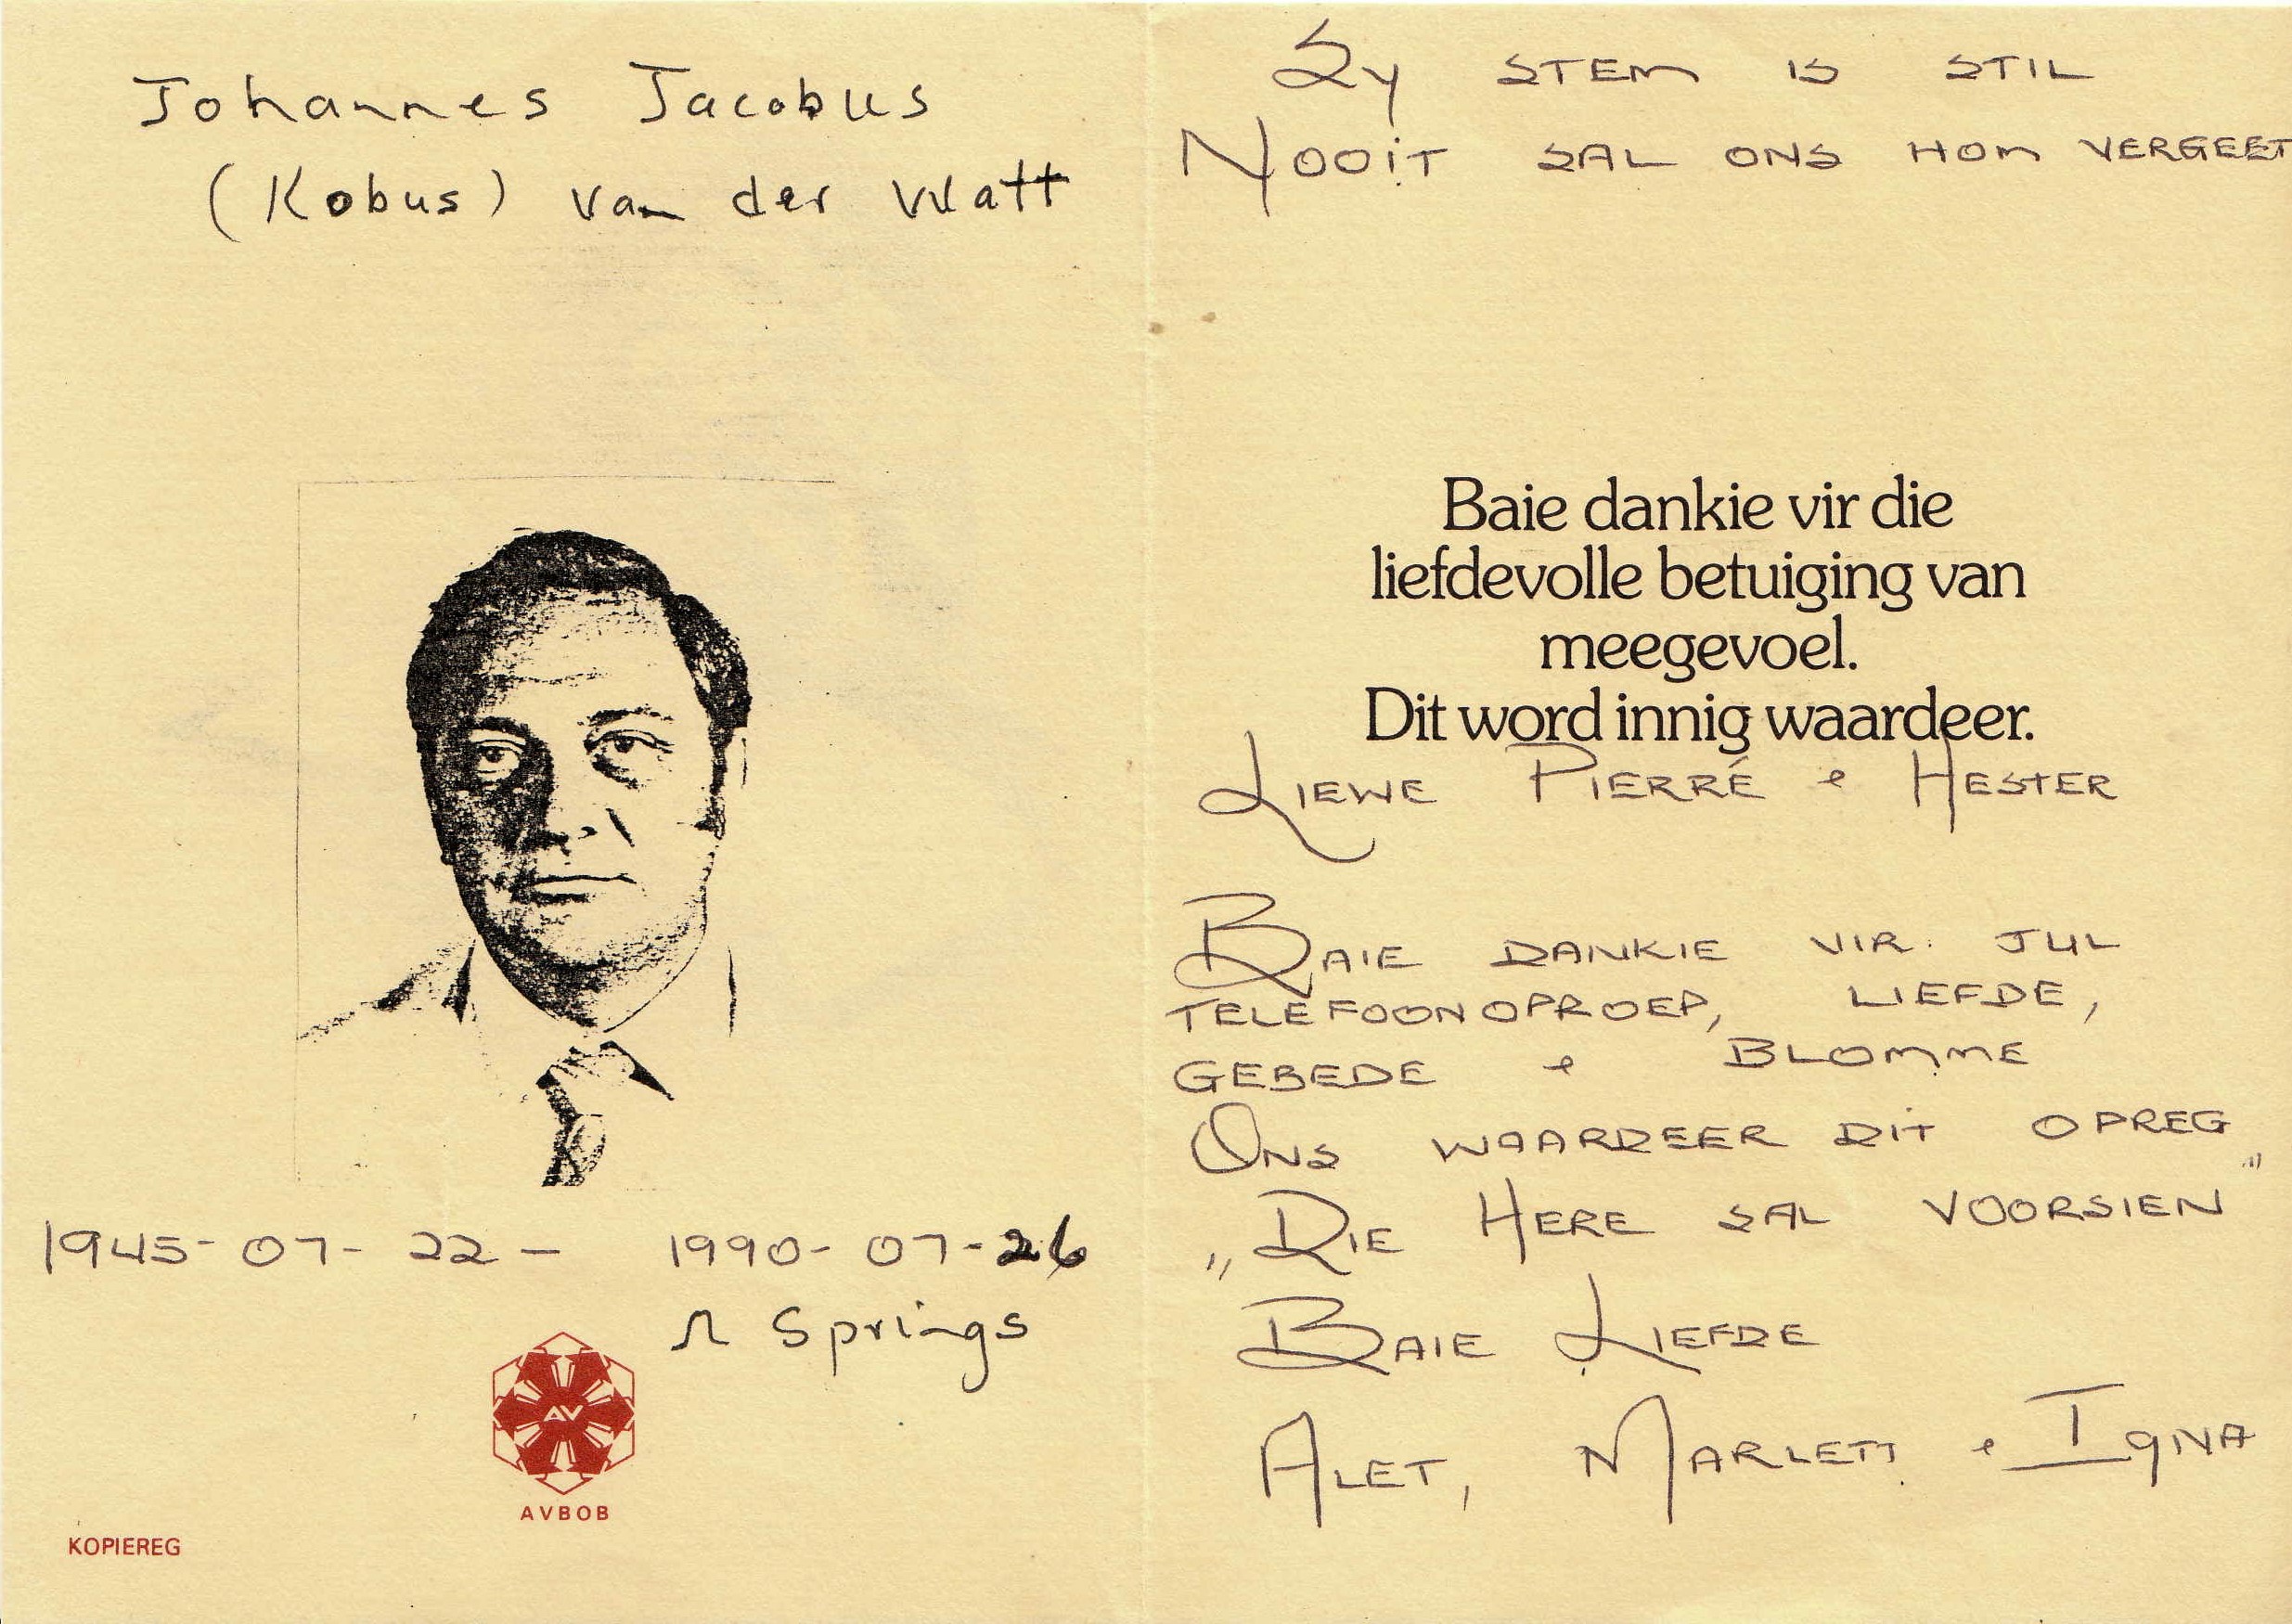 Johannes Jacobus
(Kobus) van der Watt
1945-07-22 - 1990-07-26
Ω Springs
AV
AVBOB
KOPIEREG
SY STEM IS STIL
NOOIT SAL ONS HOM VERGEET
Baie dankie vir die
liefdevolle betuiging van
meegevoel.
Dit word innig waardeer.
LIEWE PIERRÉ e HESTER
BAIE DANKIE VIR JUL
TELEFOONOPROEP, LIEFDE,
GEBEDE e BLOMME
ONS WAARDEER DIT OPREG
„DIE HERE SAL VOORSIEN"
BAIE LIEFDE
ALET, MARLETT e IGNA